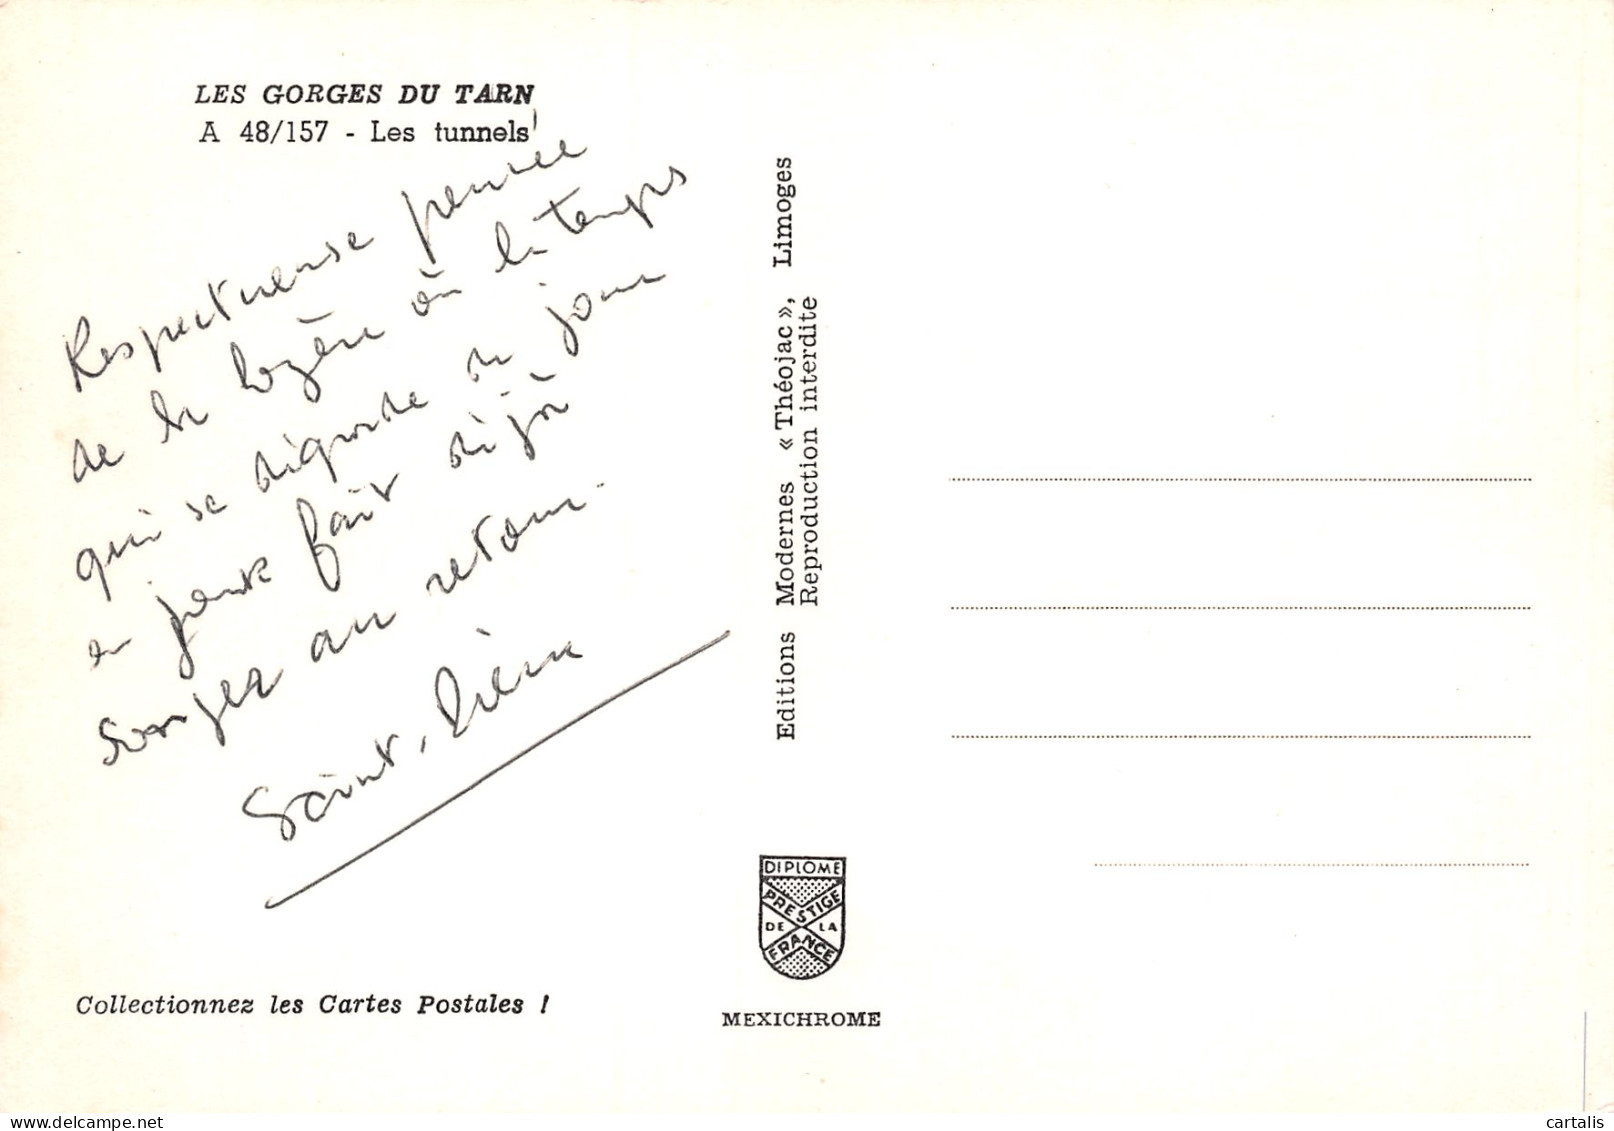 LES GORGES DU TARN
A 48/157 - Les tunnels
Respectueuse pensée
de la Lozère où le temps
qui se dégrade de jour
en jour fait déjà
songer au retour.
Saint-
Editions Modernes « Théojac », Limoges
Reproduction interdite
DIPLOME
PRESTIGE
DE LA
FRANCE
MEXICHROME
Collectionnez les Cartes Postales !
cartalis